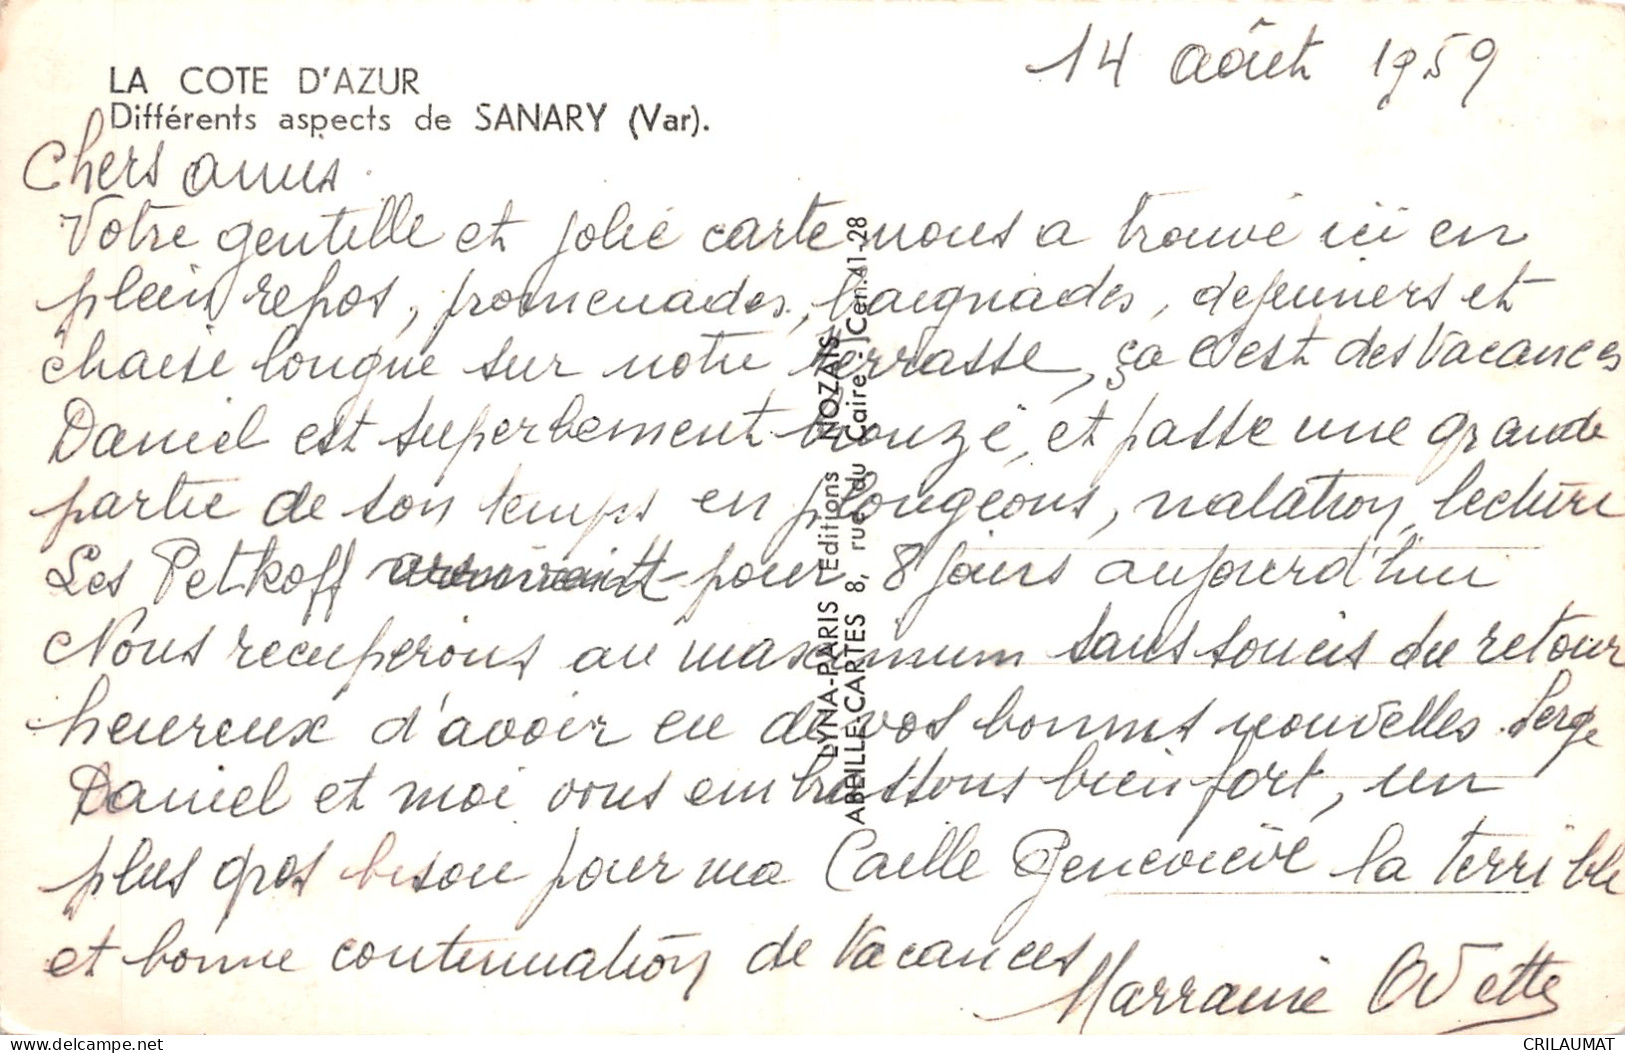 14 août 1959
LA COTE D'AZUR
Différents aspects de SANARY (Var).
Chers amis.
Votre gentille et jolie carte nous a trouvé ici en
plein repos, promenades, baignades, dejeuners et
chaise longue sur notre terrasse, ça c'est des Vacances
Daniel est superbement bronzé, et passe une grande
partie de son temps en plongeons, natation, lecture
Les Petkoff arrivent pour 8 jours aujourd'hui
Nous recuperons au maximum sans soucis du retour
heureux d'avoir eu de vos bonnes nouvelles. Serge
Daniel et moi vous embrassons bien fort, un
plus gros bisou pour ma Caille Geneviève la terrible
et bonne continuation de Vacances
Marraine Odette
LYNA-PARIS Editions NOZAIS
ABEILLE-CARTES 8, rue du Caire - (Cen.41-28
CRILAUMAT